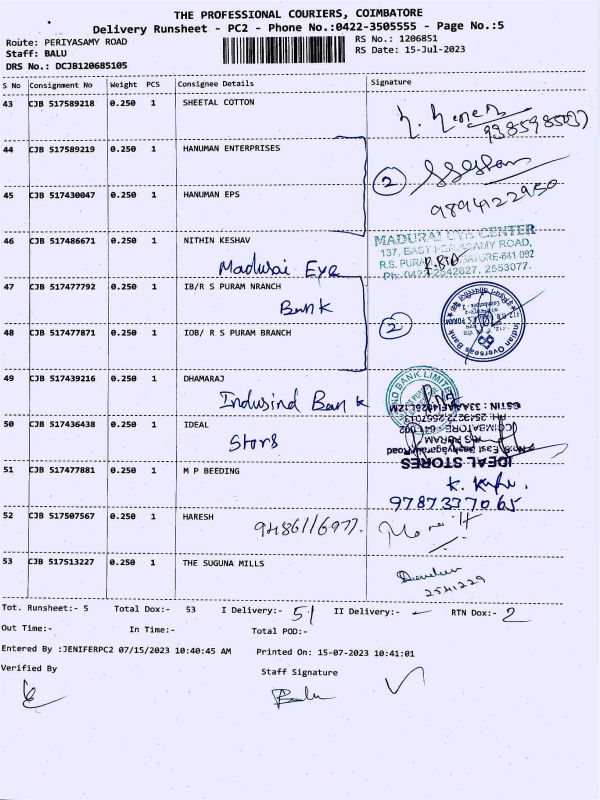 THE PROFESSIONAL COURIERS, COIMBATORE
Delivery Runsheet - PC2 - Phone No.:0422-3505555 - Page No.:5
Route: PERIYASAMY ROAD RS No.: 1206851
Staff: BALU RS Date: 15-Jul-2023
DRS No.: DCJB120685105
S No Consignment No Weight PCS Consignee Details Signature
43 CJB 517589218 0.250 1 SHEETAL COTTON
44 CJB 517589219 0.250 1 HANUMAN ENTERPRISES
2
9894122950
45 CJB 517430047 0.250 1 HANUMAN EPS
46 CJB 517486671 0.250 1 NITHIN KESHAV
Madurai Eye
MADURAI EYE CENTER
137, EAST PERIASAMY ROAD,
R.S. PURAM, COIMBATORE-641 002
Ph: 0422-2542627, 2553077.
47 CJB 517477792 0.250 1 IB/R S PURAM NRANCH
Bank
2
Indian Overseas Bank
48 CJB 517477871 0.250 1 IOB/ R S PURAM BRANCH
49 CJB 517439216 0.250 1 DHAMARAJ
Indusind Bank
BANK LIMITED
50 CJB 517436438 0.250 1 IDEAL
Stors
IDEAL STORES
R.S. PURAM
COIMBATORE - 641 002
51 CJB 517477881 0.250 1 M P BEEDING
9787337065
52 CJB 517507567 0.250 1 HARESH
9486116977.
53 CJB 517513227 0.250 1 THE SUGUNA MILLS
2541229
Tot. Runsheet:- 5 Total Dox:- 53 I Delivery:- 51 II Delivery:- - RTN Dox:- 2
Out Time:- In Time:- Total POD:-
Entered By :JENIFERPC2 07/15/2023 10:40:45 AM Printed On: 15-07-2023 10:41:01
Verified By Staff Signature
Balu